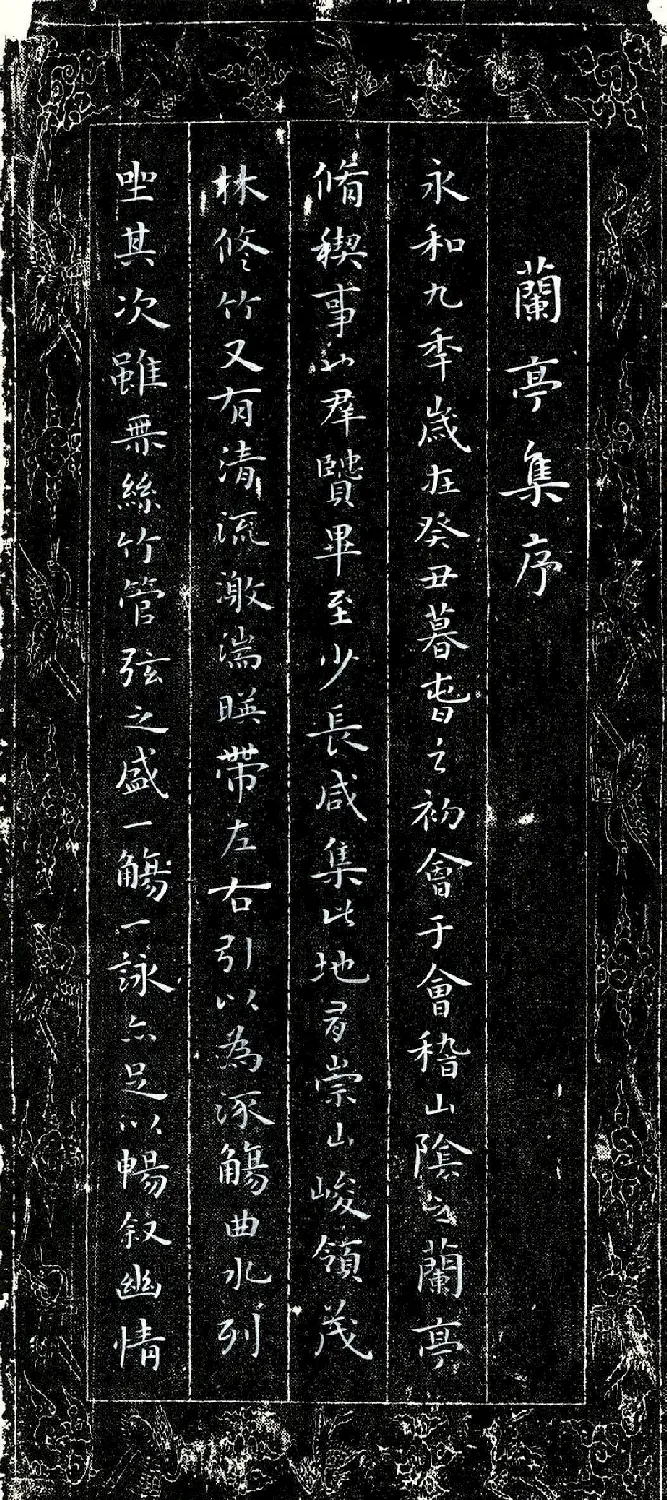 蘭亭集序
永和九秊歲在癸丑暮旾之初會于會稽山陰之蘭亭
脩稧事也羣賢畢至少長咸集此地有崇山峻領茂
林修竹又有清流激湍暎帶左右引以為流觴曲水列
坐其次雖無絲竹管弦之盛一觴一詠亦足以暢叙幽情